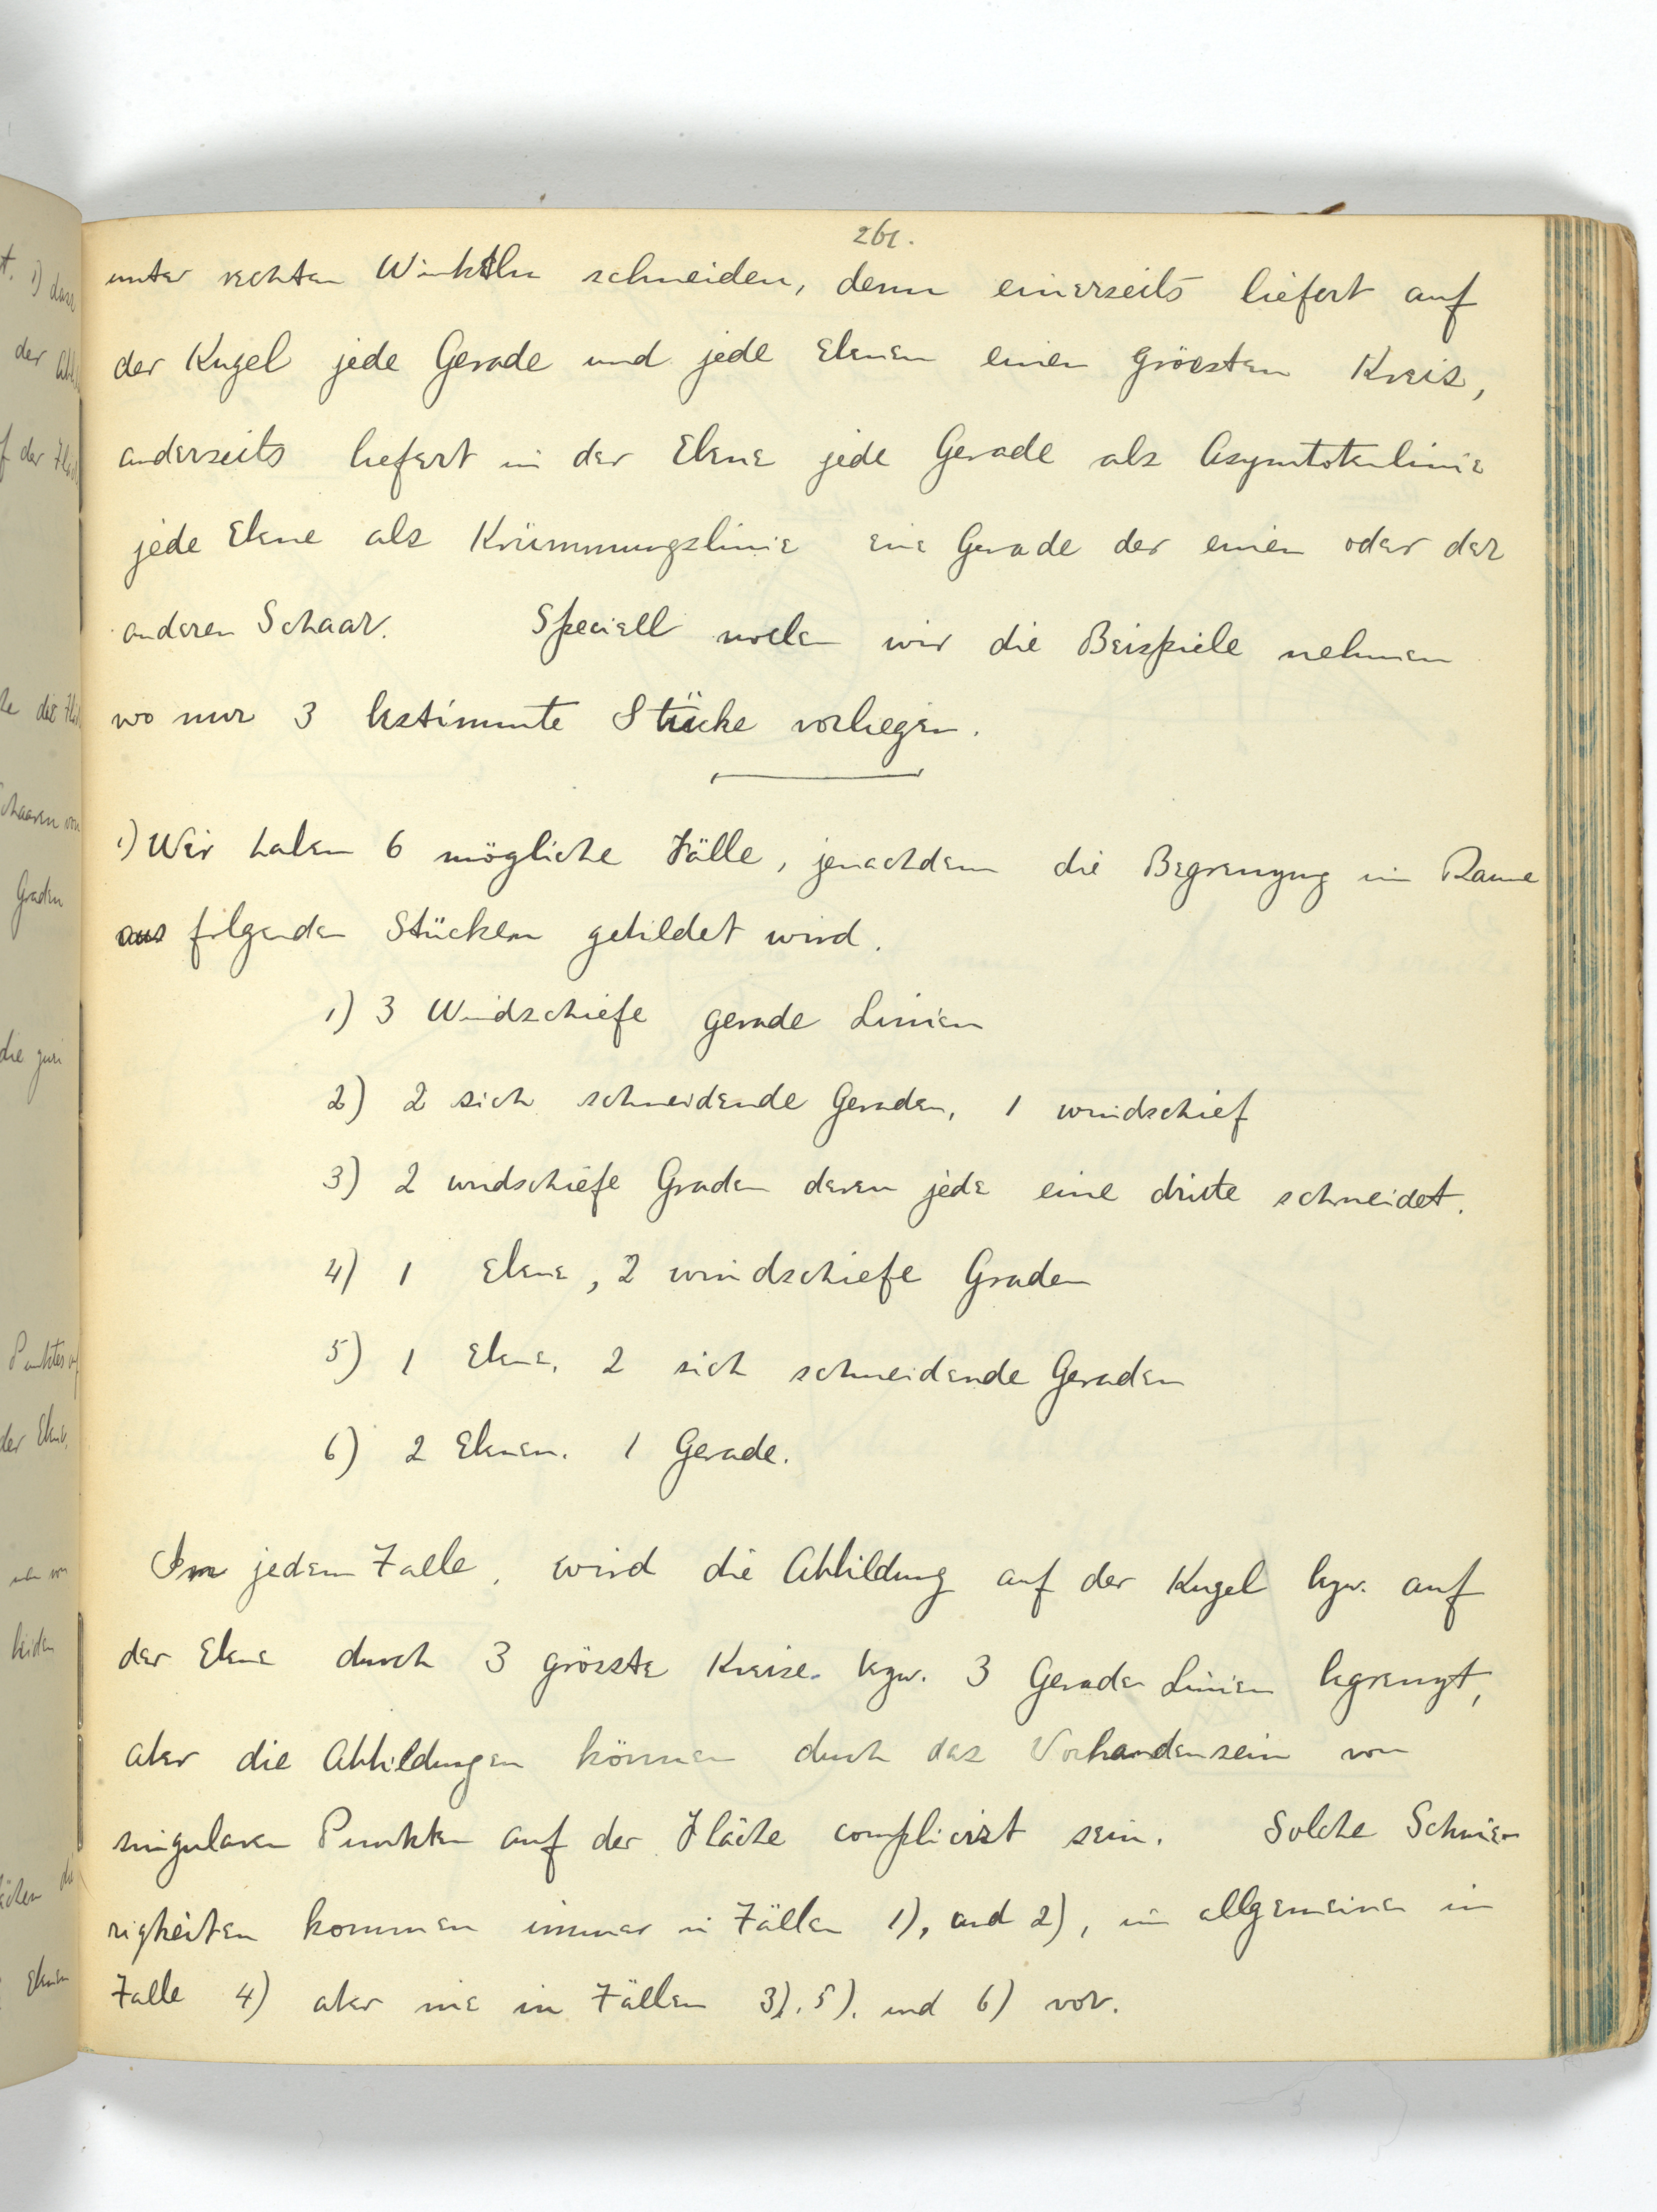 261.
unter rechten Winkeln schneiden, denn einerseits liefert auf
der Kugel jede Gerade und jede Ebenen einen grössten Kreis,
anderseits liefert in der Ebene jede Gerade als Asymtotenlinie
jede Ebene als Krümmungslinie eine Gerade der einen oder der
anderen Schaar. Speciell wollen wir die Beispiele nehmen
wo nur 3 bestimmte Stücke vorliegen.
1) Wir haben 6 mögliche Fälle, jenachdem die Begrenzung im Raume
aus folgenden Stücken gebildet wird.
1) 3 Windschiefe gerade Linien
2) 2 sich schneidende Geraden, 1 windschief
3) 2 windschiefe Graden deren jede eine dritte schneidet.
4) 1 Ebene, 2 windschiefe Graden
5) 1 Ebene, 2 sich schneidende Geraden
6) 2 Ebenen. 1 Gerade.
Im jedem Falle, wird die Abbildung auf der Kugel bzw. auf
der Ebene durch 3 grösste Kreise bzw. 3 Gerade Linien begrenzt,
aber die Abbildungen können durch das Vorhandensein von
singularen Punkten auf der Fläche complicirt sein. Solche Schwie-
rigkeiten kommen immer in Fällen 1), und 2), im allgemeinen in
Falle 4) aber nie in Fällen 3), 5). und 6) vor.